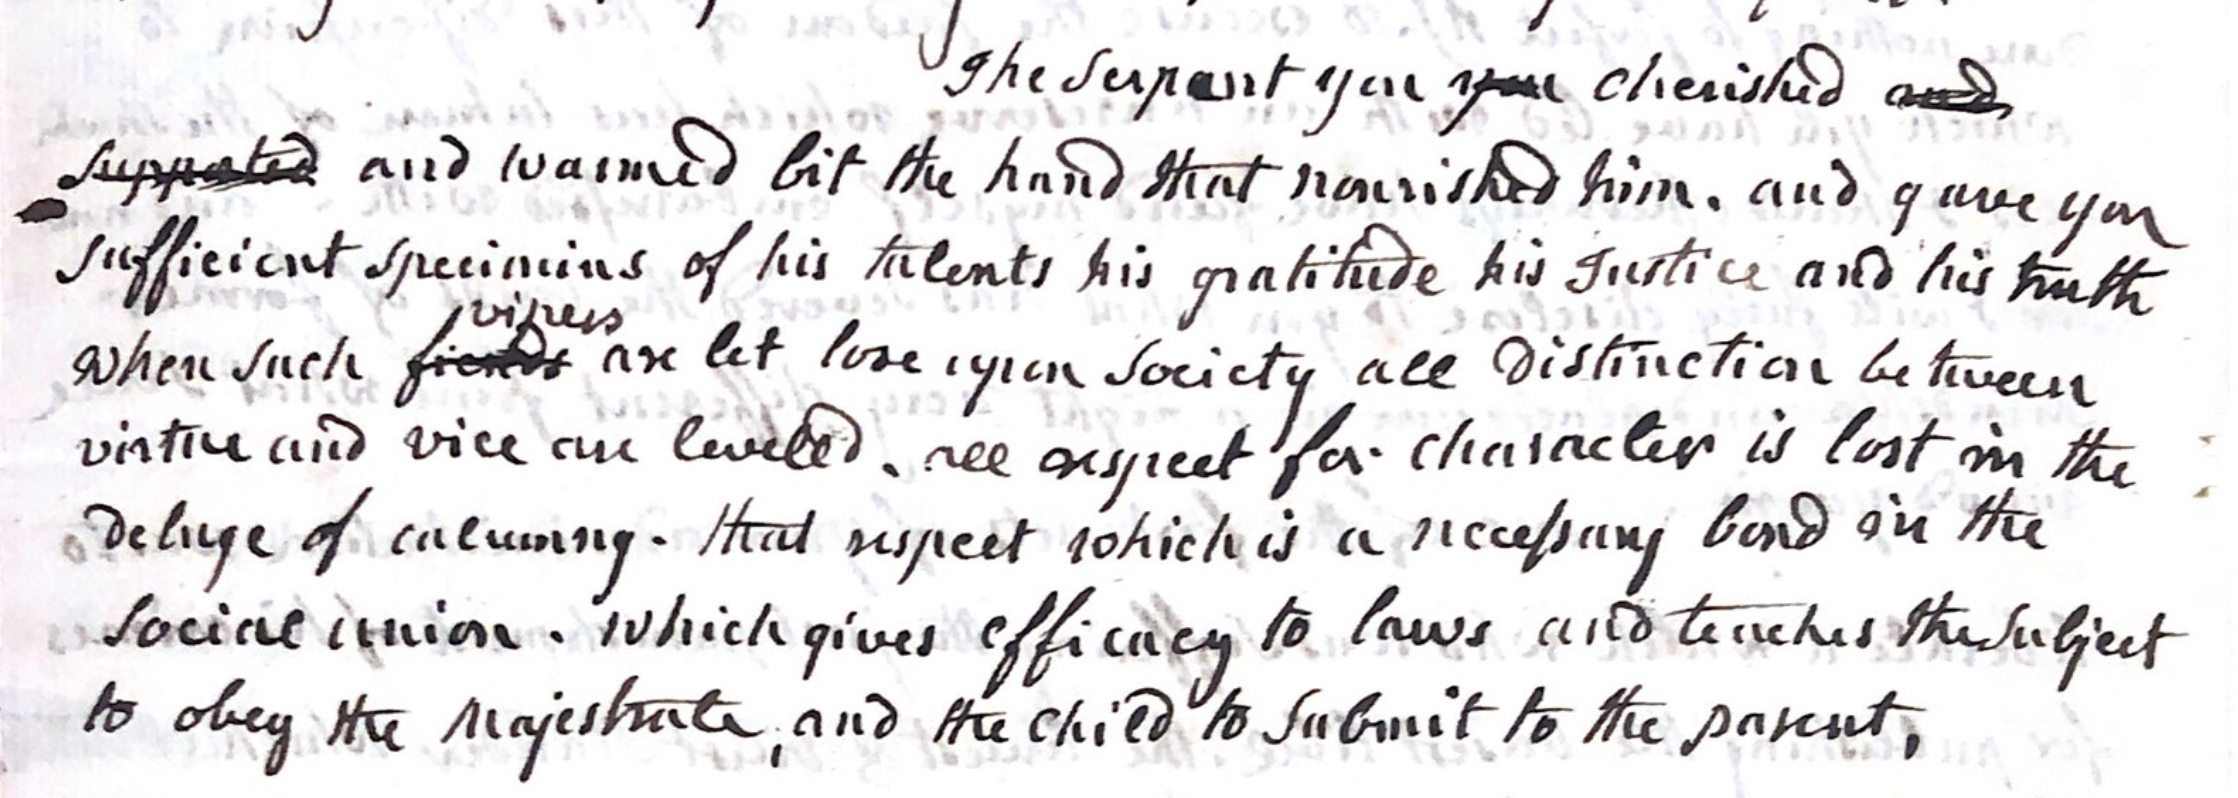 The Serpant you ~~you~~ cherished ~~and~~
~~supported~~ and warmed bit the hand that nourished him. and gave you
sufficient specimins of his talents his gratitude his Justice and his truth
vipers
when such ~~fiends~~ are let lose upon Society all distinction between
virtue and vice are leveled. all respect for character is lost in the
deluge of calumny. that respect which is a necessary bond in the
Social union. which gives efficacy to laws and teaches the Subject
to obey the Majestrate, and the child to submit to the parent,